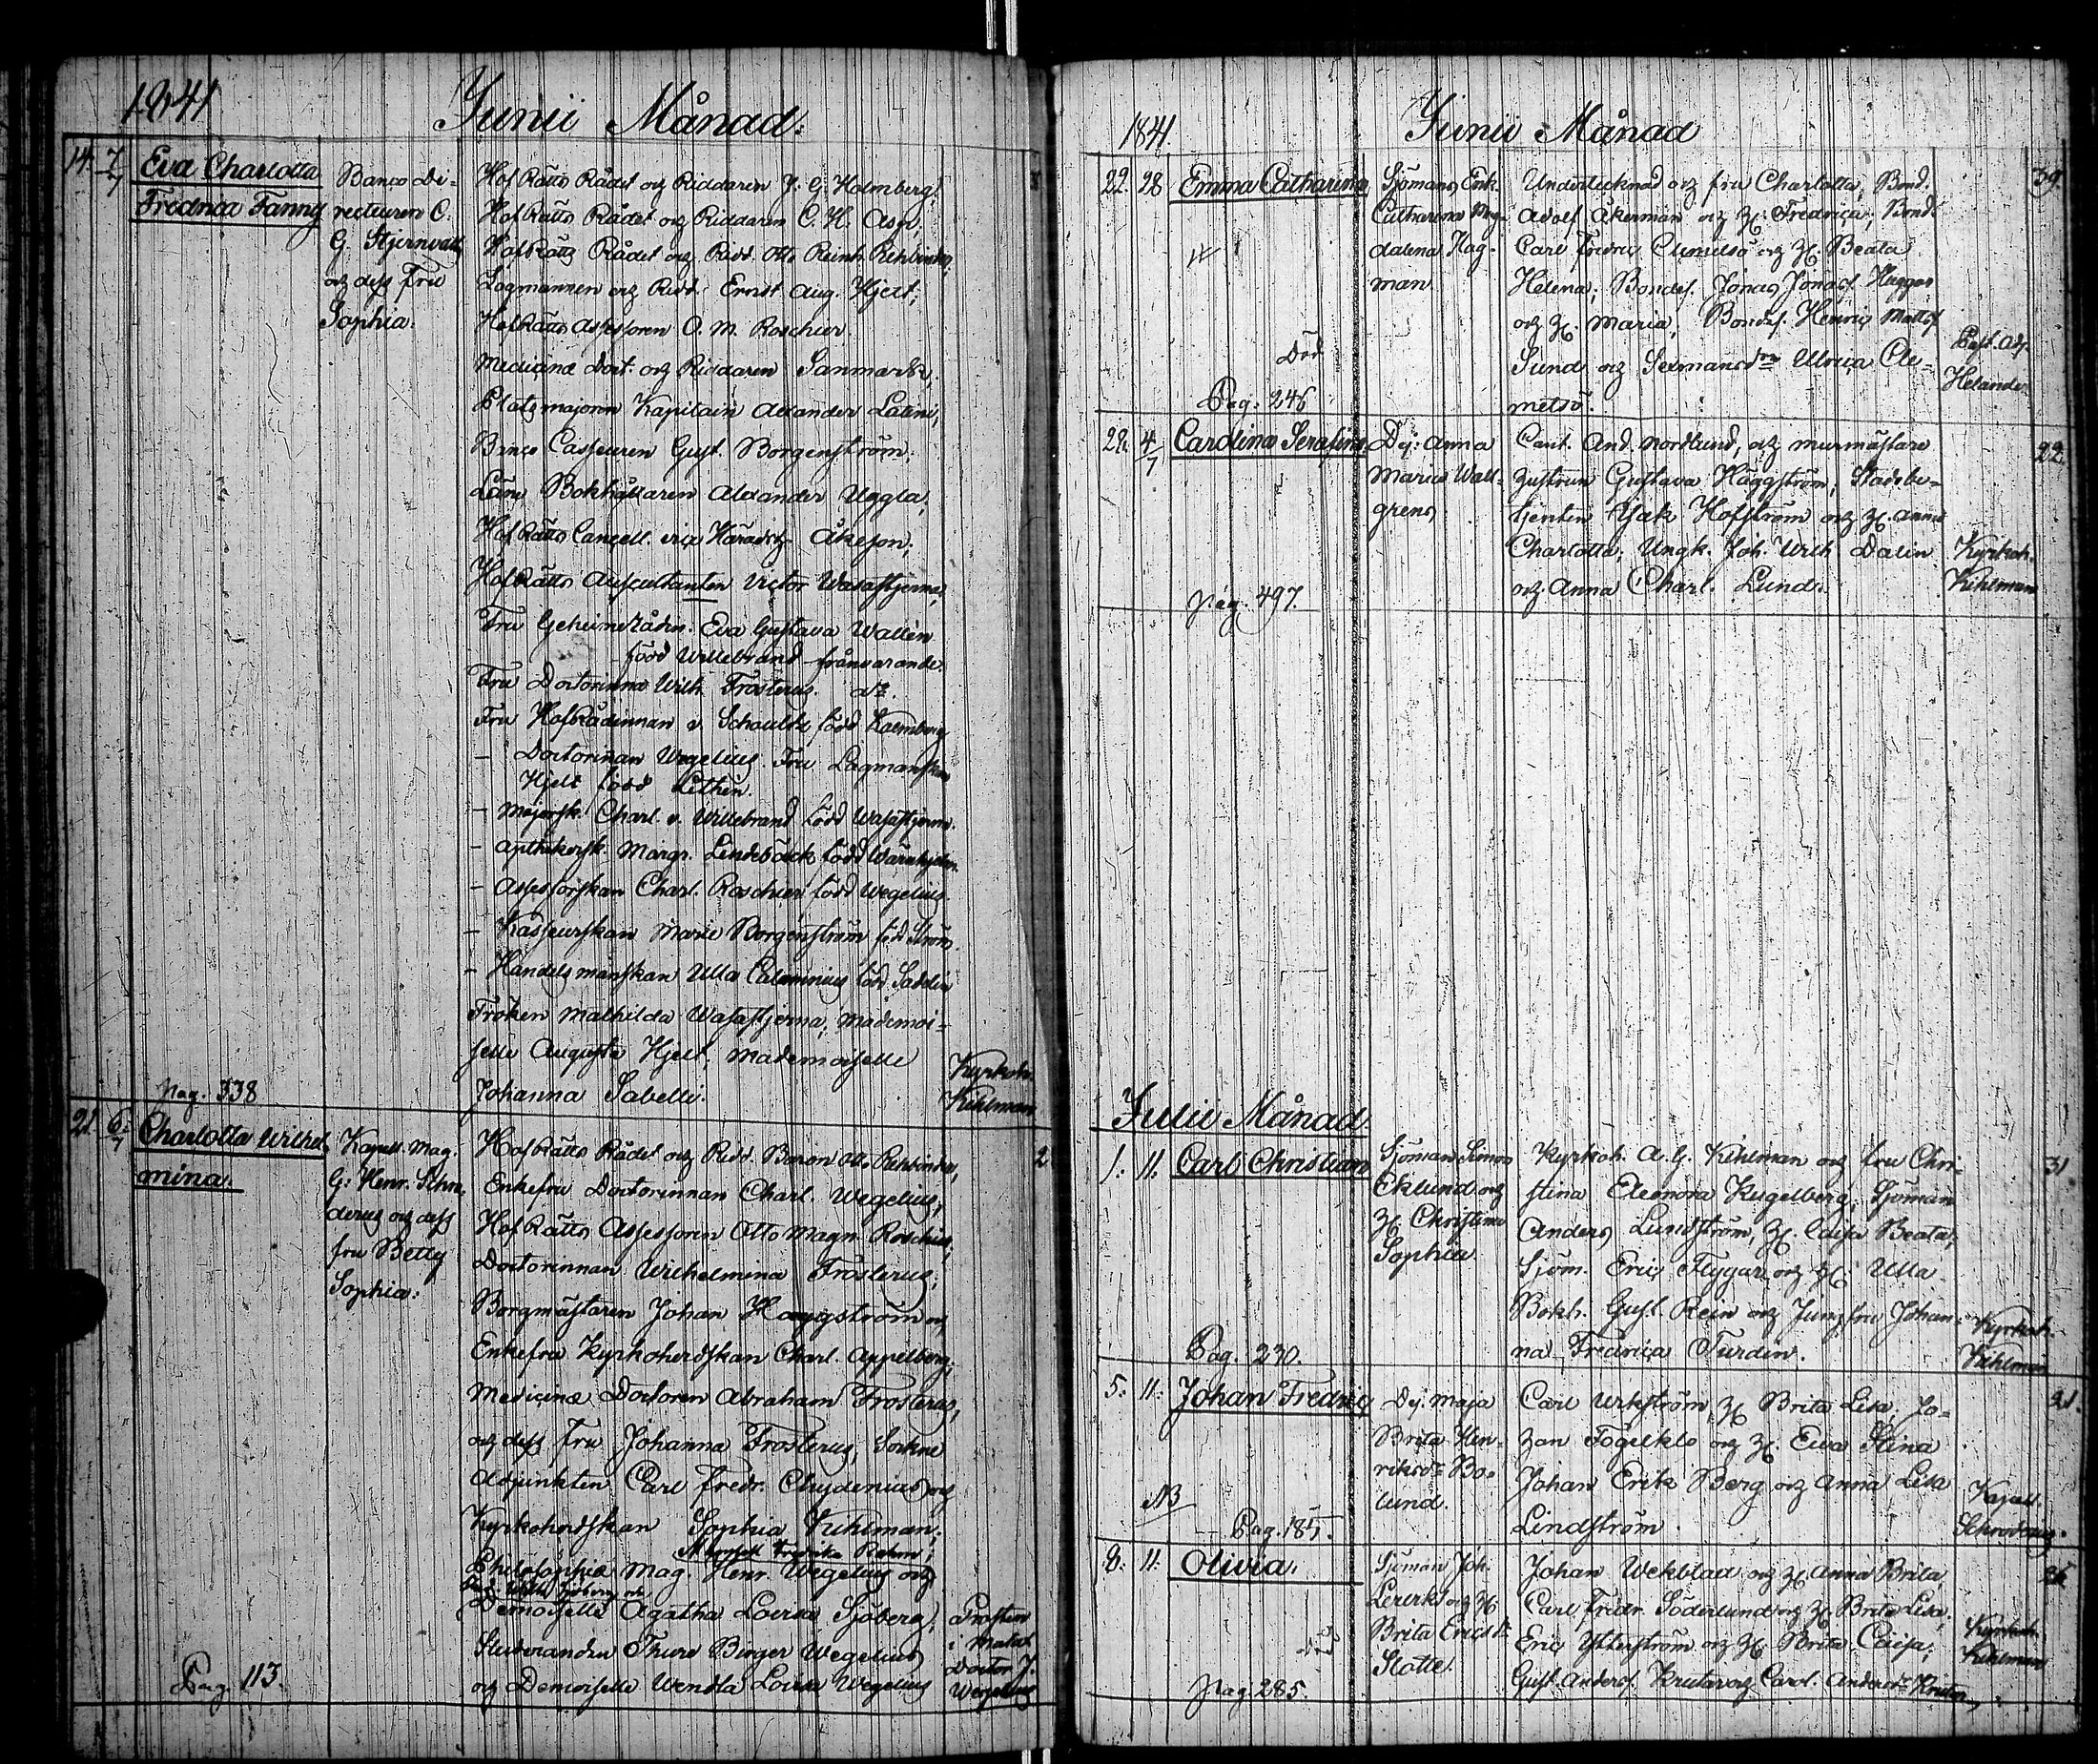 1841 Junii Månad.
14. 7/7 Eva Charlotta
Fredrica Fanny
Banco Di-
recteuren C.
G. Stjernvall
och dess Fru
Sophia.
Hof Rätts Rådet och Riddaren J. G. Holmberg;
Hof Rätts Rådet och Riddaren C. H. Asp;
Hof Rätts Rådet och Ridd. Otto Reinh. Rehbinder;
Lagmannen och Ridd. Ernst Aug. Hjelt;
Hof Rätts Assessoren O. M. Roschier
Medicinæ Doct. och Riddaren Sanmark;
Platzmajoren Kapitain Alexander Latini,
Banco Casseuren Gust. Borgenström;
Läns Bokhållaren Alexander Uggla;
Hof Rätts Cancell. vice Häradsh. Åkeson;
Hof Rätts Auscultanten Victor Wasastjerna;
Fru Geheimerådin. Eva Gustava Wallén
född Willebrand frånvarande.
Fru Doctorinna Wilh. Frosterus. dt.
Fru Hofrådinnan v. Schoultz född Holmberg
– Doctorinnan Wegelius Fru Lagmanskan
Hjelt född Lithén.
– Majorsk. Charl. v. Willebrand född Wasastjerna.
– Apthekarsk. Margr. Lindebäck född
– Assessorskan Charl. Roschier född Wegelius.
– Kasseurskan Marie Borgenström född Ström
– Handelsmanskan Ulla Calamnius född Sadelin
Fröken Mathilda Wasastjerna, Mademoi-
selle Augusta Hjelt, Mademoiselle
Johanna Sabelli.
Kyrkoh.
Kihlman
Pag. 338
21. 6/7 Charlotta Wilhel-
mina.
Kapell. Mag.
G. Henr. Schro-
derus och dess
fru Betty
Sophia.
Hof Rätts Rådet och Ridd. Baron Otto Rehbinder,
Enkefru Doctorinnan Charl. Wegelius,
Hof Rätts Assessoren Otto Magn. Roschier,
Doctorinnan Wilhelmina Frosterus;
Borgmästaren Johan Häggström och
Enkefru Kyrkoherdskan Charl. Appelberg;
Medicinæ Doctoren Abraham Frosterus,
och dess fru Johanna Frosterus, Sockne
Adjunkten Carl Fredr. Chydenius och
Kyrkoherdskan Sophia Kihlman;
Mamsell Fredrika Rehn;
Philosophiæ Mag. Henr. Wegelius och
Demoiselle Agatha Lovisa Sjöberg;
Studeranden Thure Birger Wegelius
och Demoiselle Wendla Lovisa Wegelius
Prosten
i Malax
Doctor J.
Wegelius
2
Pag. 113.
1841. Junii Månad
22. 28 Emma Catharina
Sjömans Enk.
Catharina Mag-
dalena Hag-
man.
Undertecknad och fru Charlotta; Bond.
Adolf Åkerman och H. Fredrica; Bond.
Carl Fredric Clemetsö och H. Beata
Helena; Bondes. Jonas Jonass. Haggas
och H. Maria; Bondes. Henric Mattss.
Sund och Sexmansdtr Ulrica Cle-
metsö.
Past. Adj.
Helander
39.
Död
Pag. 246
28. 4/7 Carolina Serafina
Pig. Anna
Maria Wall-
gren
Cant. And. Nordlund, och Murmästare
hustrun Gustava Häggström; Stadsbe-
tjenten Isak Hofström och H. Anna
Charlotta; Ungk. Joh. Wilh. Dalin
och Anna Charl. Lund.
Kyrkoh.
Kihlman
22.
Pag. 497.
Julii Månad.
1. 11. Carl Christian
Sjöman Simon
Eklund och
H. Christina
Sophia.
Kyrkoh. A. G. Kihlman och fru Chri-
stina Eleonora Kugelberg; Sjöman
Anders Lundström, H. Caisa Beata,
Sjöm. Eric Flygar och H. Ulla
Bokh. Gust. Rein och Jungfru Johan-
na Fredrica Turdin.
Kyrkoh.
Kihlman
31
Pag. 230.
5. 11. Johan Fredric
Pig. Maja
Brita Hen-
riksdr Bo-
lund.
Carl Wikström, H. Brita Lisa, Jo-
han Fogelklo och H. Ewa Stina
Johan Erik Berg och Anna Lisa
Lindström
Kapell.
Schroderus.
21.
NB
Pag. 185.
8. 11. Olivia.
Sjöman Joh.
Lererks och H.
Brita Ericsdr
Slotte.
Johan Wekblad och H. Anna Brita,
Carl Fredr. Söderlund och H. Brita Lisa,
Eric Ytterström och H. Brita Caisa;
Gust. Anders. Krutar och Carol. Andersdr Krutar.
Kyrkoh.
Kihlman
Död
Pag. 285.